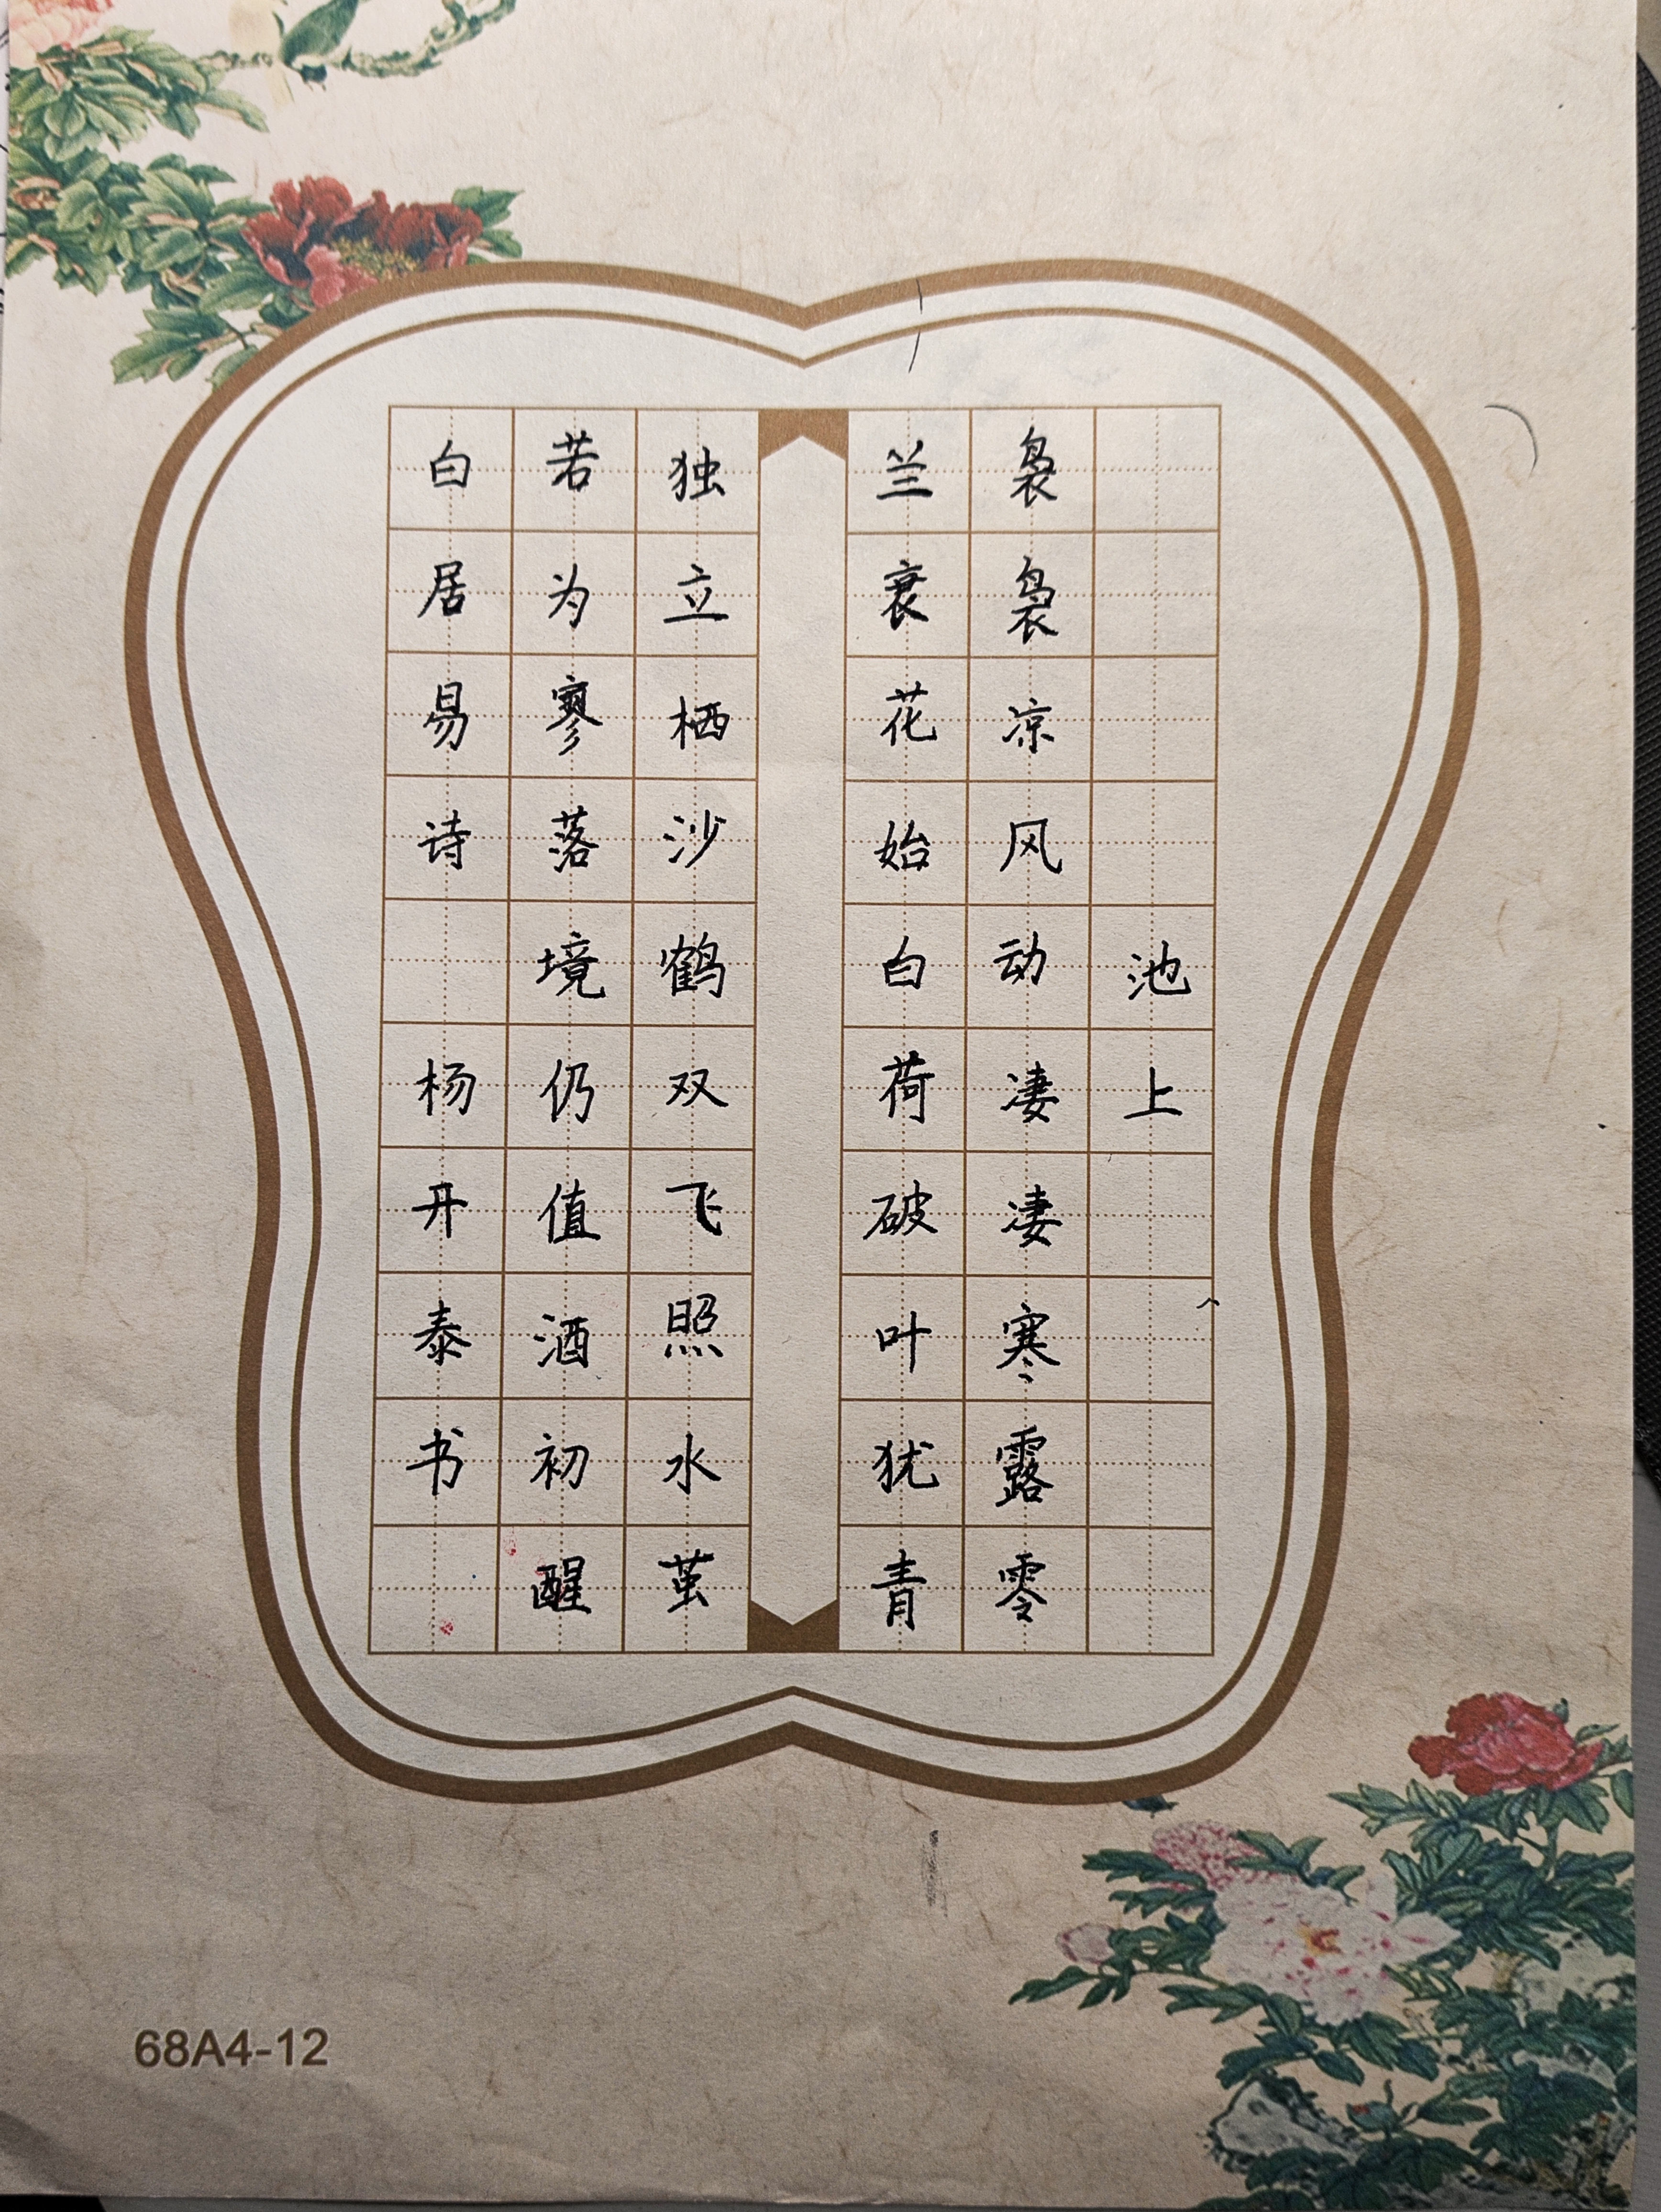 池上
袅袅凉风动凄凄寒露零
兰衰花始白荷破叶犹青
独立栖沙鹤双飞照水萤
若为寥落境仍值酒初醒
白居易诗 杨开泰书
68A4-12